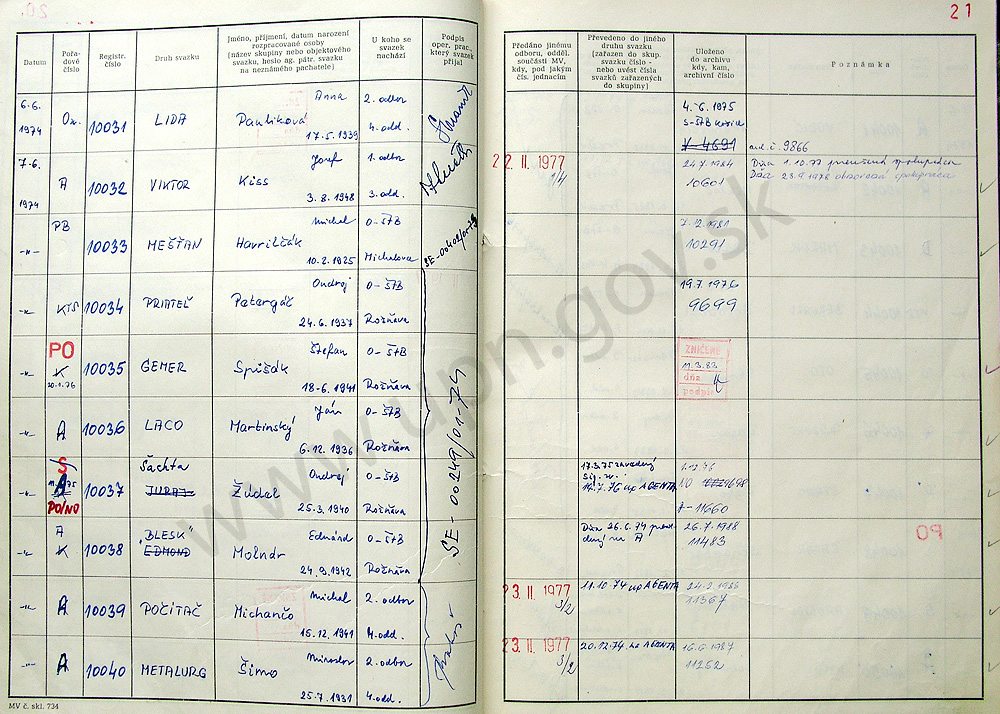 21
Datum
Pořadové číslo
Registr. číslo
Druh svazku
Jméno, příjmení, datum narození rozpracované osoby
(název skupiny nebo objektového svazku, heslo ag. pátr. svazku na neznámého pachatele)
U koho se svazek nachází
Podpis oper. prac., který svazek přijal
Předáno jinému odboru, odděl. součásti MV, kdy, pod jakým čís. jednacím
Převedeno do jiného druhu svazku
(zařazen do skup. svazku číslo - nebo uvést čísla svazků zařazených do skupiny)
Uloženo do archivu kdy, kam, archivní číslo
Poznámka
6.6. 1974
10031 LIDA
Anna
Pauliková
17.5.1939
2. odbor
4. odd.
4.-6.1975
4691
9866
7.6. 1974
A 10032 VIKTOR
Jozef
Kiss
3.8.1948
1. odbor
3. odd.
22.II.1977
1/4
24.7.1984
10601
Dňa 1.10.77
PB
10033 MEŠŤAN
Michal
Havrilčák
10.2.1925
O-ŠtB
Michalovce
7.12.1981
10291
10034 PRIATEĽ
Ondrej
Petergáč
24.6.1937
O-ŠtB
Rožňava
19.7.1976
9699
PO
K
20.1.76
10035 GEMER
Štefan
Spišák
18-6.1941
O-ŠtB
Rožňava
SE-00249/01-74
ZNIČENÉ
11.3.82
dňa
podpis
A 10036 LACO
Ján
Martinský
6.12.1936
O-ŠtB
Rožňava
PO/NO
10037 Šachta
JURAJ
Ondrej
Žúdel
25.3.1940
O-ŠtB
Rožňava
17.3.75 zavedený
14.7.76 up AGENTA
11660
A
K
10038 "BLESK"
EDMOND
Eduárd
Molnár
24.9.1942
O-ŠtB
Rožňava
Dňa 26.6.74
A
26.7.1988
11483
A 10039 POČÍTAČ
Michal
Michančo
15.12.1941
2. odbor
4. odd.
23.II.1977
3/2
11.10.74 up AGENTA
11367
A 10040 METALURG
Miroslav
Šimo
25.7.1931
2. odbor
4. odd.
23.II.1977
3/2
20.12.74 na AGENTA
16.6.1987
11262
MV č. skl. 734
www.upn.gov.sk